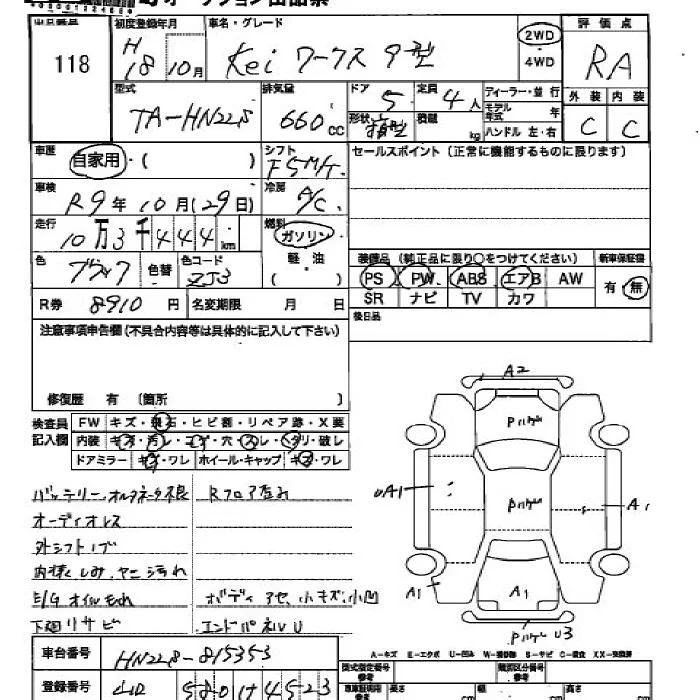 オークション出品票
出品番号 118
初度登録年月 H18 10月
車名・グレード Kei ワークス 9型
2WD・4WD
評価点 RA
型式 TA-HN22S
排気量 660cc
ドア 5
定員 4人
形状 箱型
積載 kg
ディーラー・並行
モデル年式 年
ハンドル 左・右
外装 C
内装 C
車歴 自家用・( )
シフト F5M/T
セールスポイント (正常に機能するものに限ります)
車検 R9年10月(29日)
冷房 A/C
走行 10万3千444km
燃料 ガソリン 軽油 ( )
色 ブラック
色替
色コード ZJ3
装備品(純正品に限り○をつけてください)
新車保証書
PS PW ABS エアB AW
SR ナビ TV カワ
有・無
R券 8910円
名変期限 月 日
後日品
注意事項申告欄(不具合内容等は具体的に記入して下さい)
修復歴 有 (箇所 )
検査員記入欄
FW キズ・飛石・ヒビ割・リペア跡・X要
内装 キズ・汚レ・コゲ・穴・スレ・ヘタリ・破レ
ドアミラー キズ・ワレ ホイール・キャップ キズ・ワレ
バッテリー、オルタネータ不良
Rフロア歪み
オーディオレス
外シフトノブ
内装しみ、ヤニ汚れ
E/Gオイルもれ
ボディ アセ、小キズ、小凹
下廻りサビ
エンドパネルU
A2
UA1
A1
A1
A1
U3
A-キズ E-エクボ U-凹み W-補修跡 S-サビ C-腐食 XX-交換済
車台番号 HN22S-815353
型式指定番号 参考
類別区分番号 参考
登録番号 580 4523
車庫証明用 参考 長さ cm 幅 cm 高さ cm